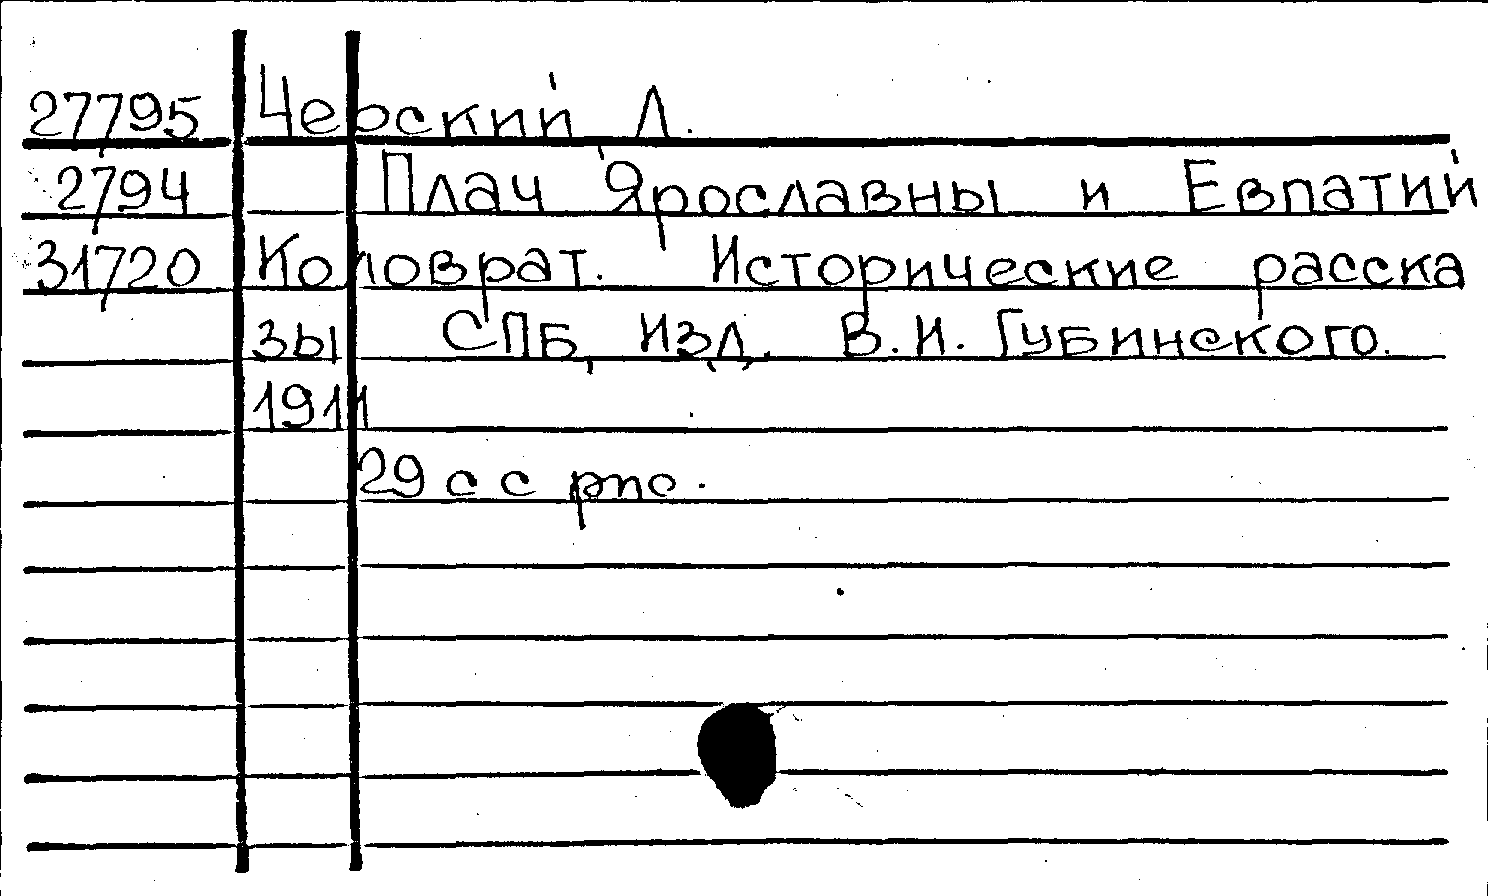 27795 Черский Л.
2794 Плач Ярославны и Евпатий
31720 Коловрат. Исторические расска
зы СПБ, Изд. В.И. Губинского.
1911
29 с с рис.